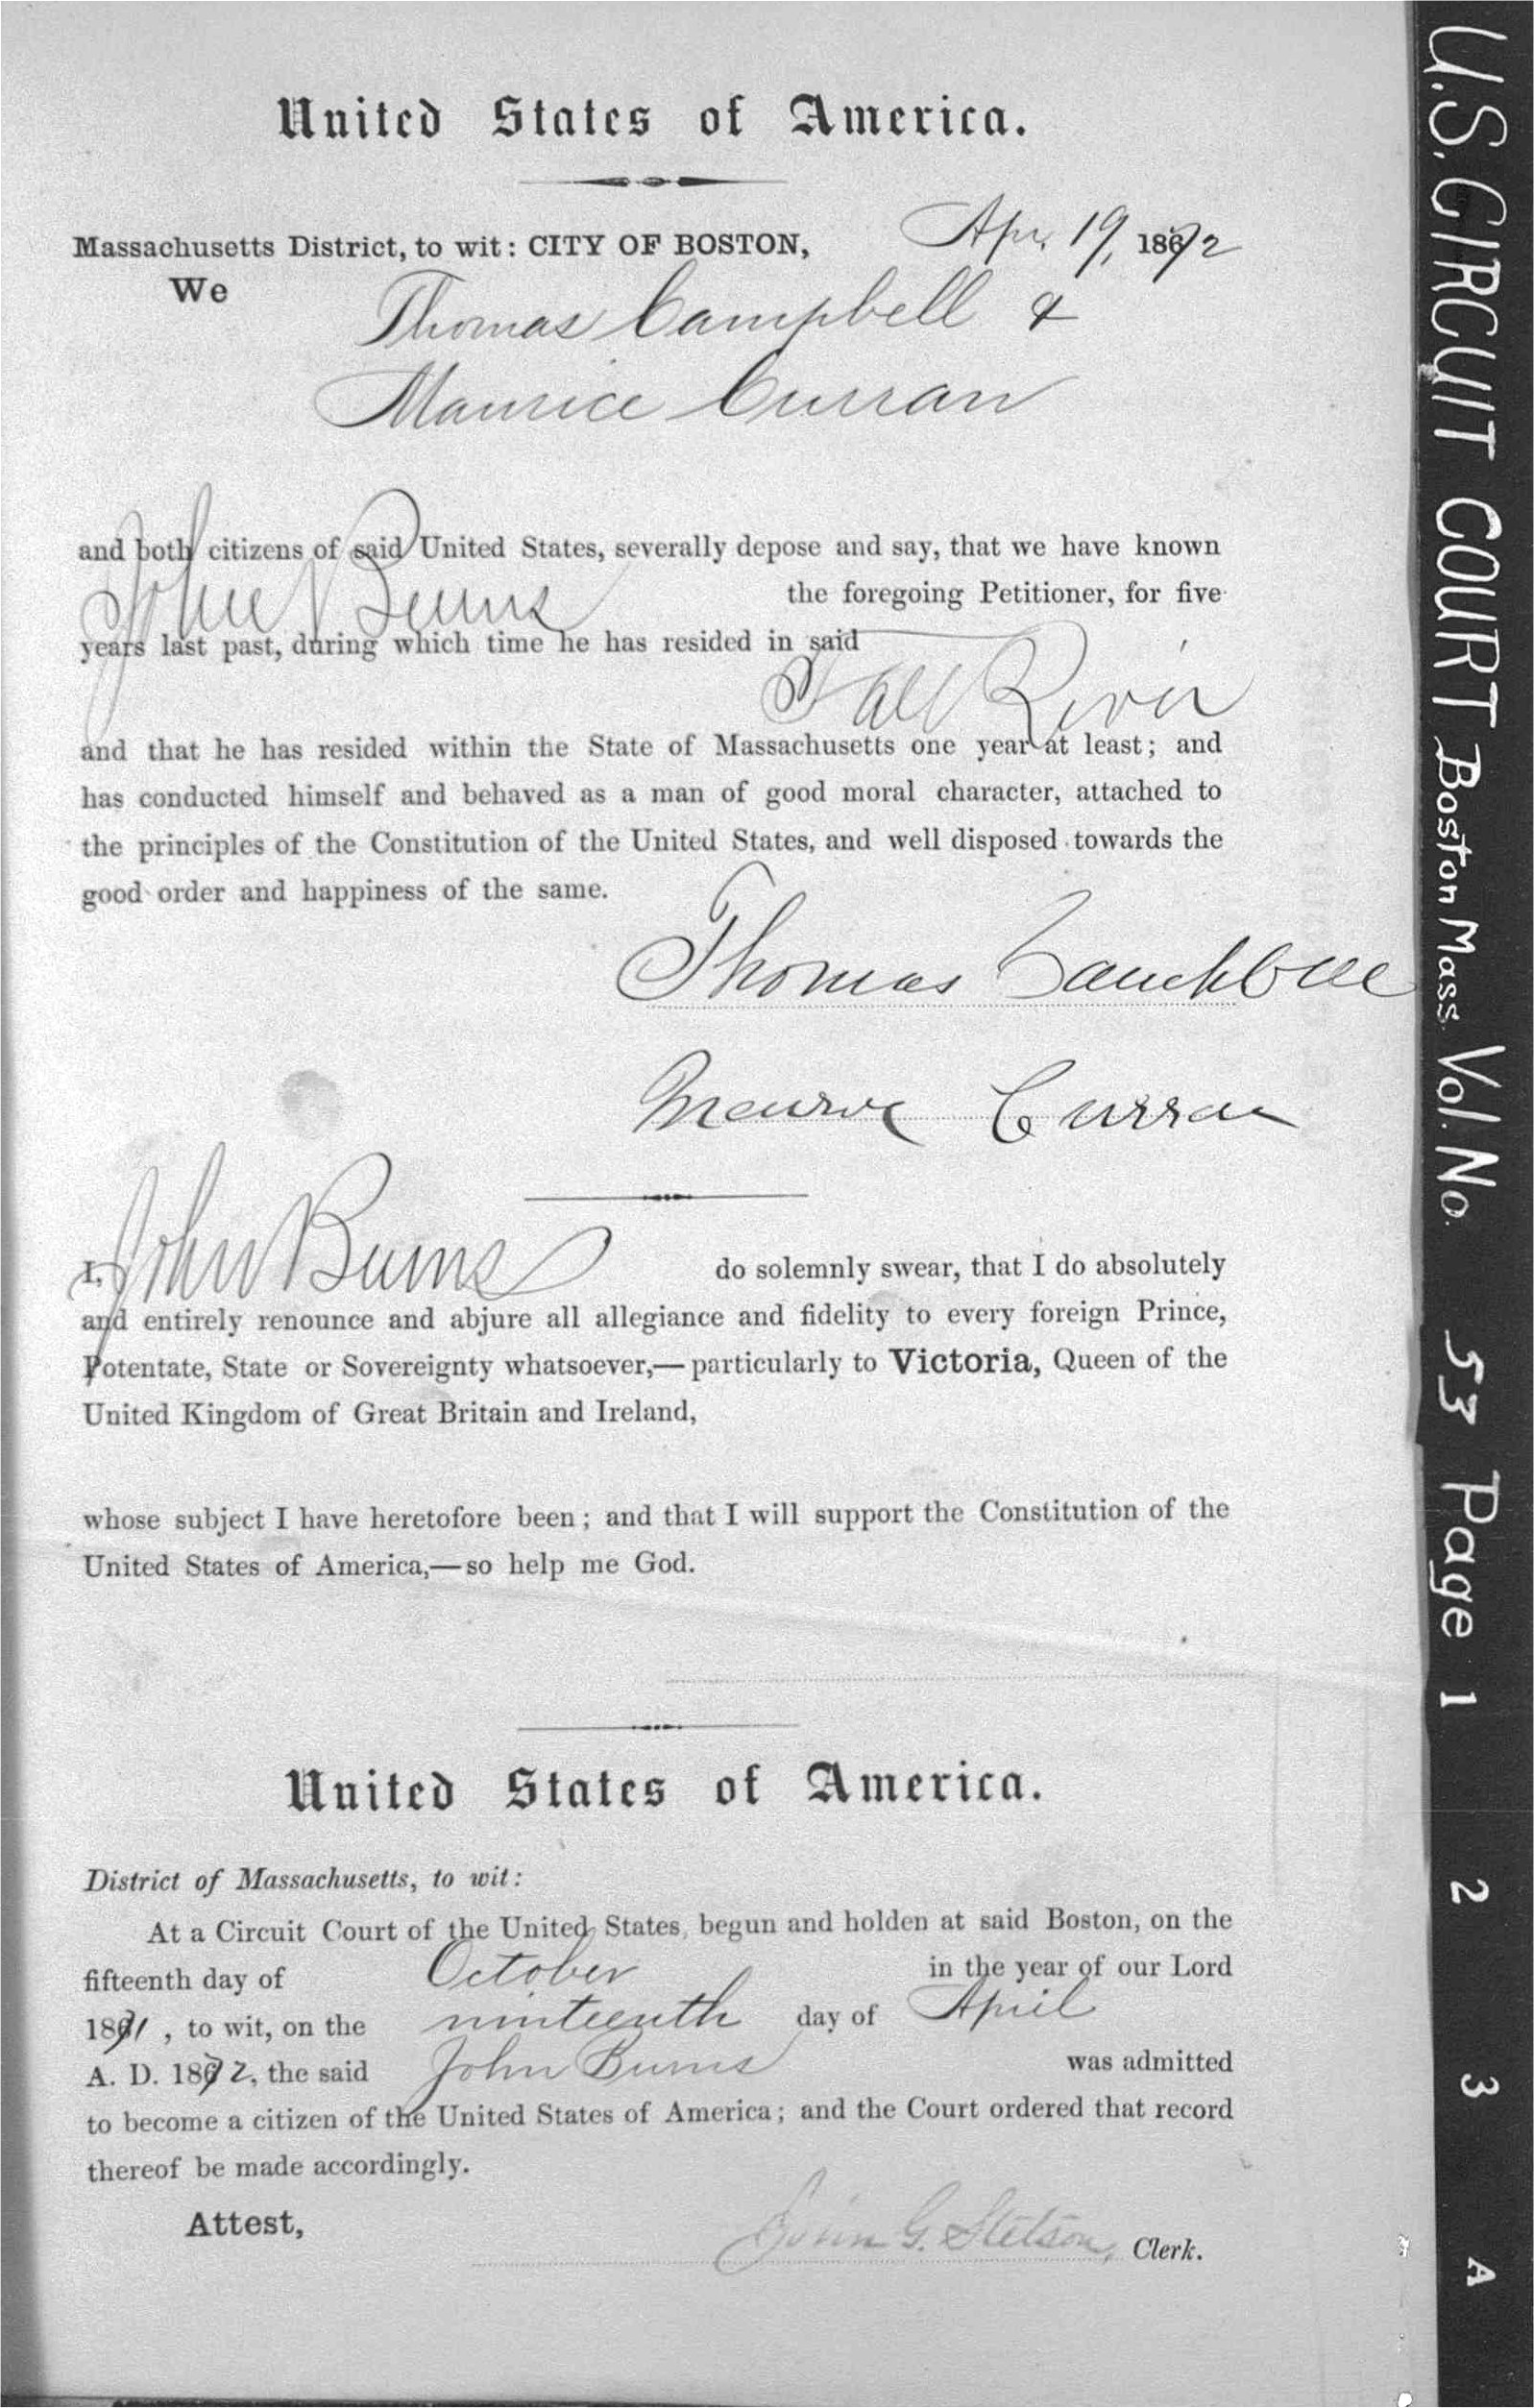 United States of America.
Massachusetts District, to wit: CITY OF BOSTON, Apr. 19, 1872
We
Thomas Campbell &
Maurice Curran
and both citizens of said United States, severally depose and say, that we have known
John Burns the foregoing Petitioner, for five
years last past, during which time he has resided in said
Fall River
and that he has resided within the State of Massachusetts one year at least; and
has conducted himself and behaved as a man of good moral character, attached to
the principles of the Constitution of the United States, and well disposed towards the
good order and happiness of the same.
Thomas Campbell
Maurice Curran
I, John Burns do solemnly swear, that I do absolutely
and entirely renounce and abjure all allegiance and fidelity to every foreign Prince,
Potentate, State or Sovereignty whatsoever,—particularly to Victoria, Queen of the
United Kingdom of Great Britain and Ireland,
whose subject I have heretofore been; and that I will support the Constitution of the
United States of America,—so help me God.
United States of America.
District of Massachusetts, to wit:
At a Circuit Court of the United States, begun and holden at said Boston, on the
fifteenth day of October in the year of our Lord
1871, to wit, on the ninteenth day of April
A. D. 1872, the said John Burns was admitted
to become a citizen of the United States of America; and the Court ordered that record
thereof be made accordingly.
Attest,
G. Stetson, Clerk.
U.S. CIRCUIT COURT Boston Mass. Vol. No. 53 Page 1 2 3 A